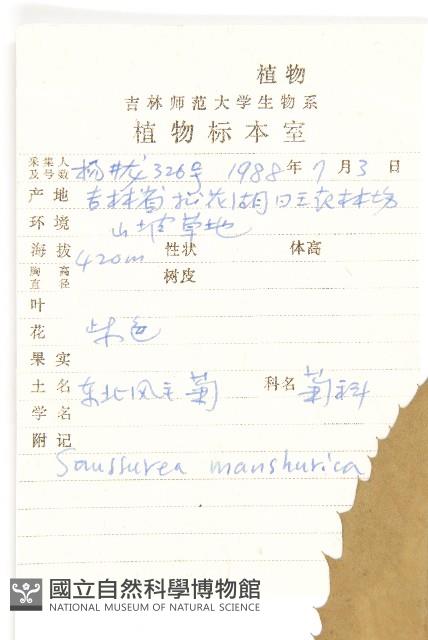 植物
吉林师范大学生物系
植物标本室
采集人及号数 杨井龙 326号 1988年7月3日
产地 吉林省松花湖 林场
环境 山坡草地
海拔 420m 性状 体高
胸高直径 树皮
叶
花 紫色
果实
土名 东北风毛菊 科名 菊科
学名
附记
Saussurea manshurica
國立自然科學博物館
NATIONAL MUSEUM OF NATURAL SCIENCE